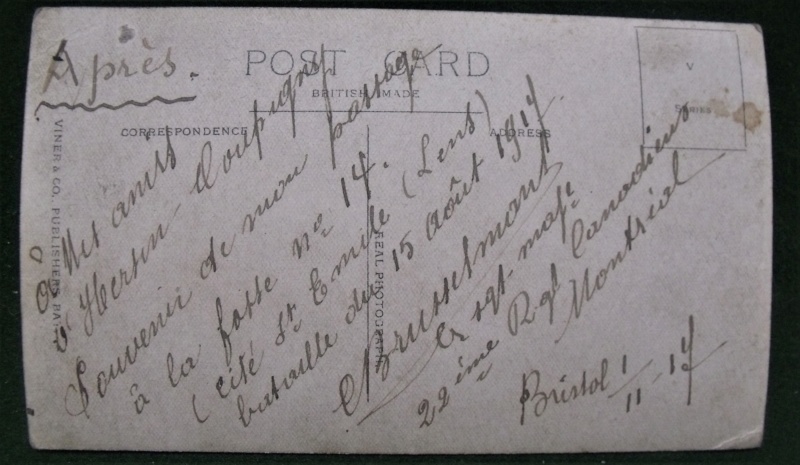 Après.
POST CARD
BRITISH MADE
CORRESPONDENCE
ADDRESS
V
SERIES
VINER & CO., PUBLISHERS,
REAL PHOTOGRAPH
à Mes amis
d'Hersin Coupigny
Souvenir de mon passage
à la fosse no 14.
(cité St Emile (Lens)
bataille du 15 août 1917
Cr sgt. maj.
22ième Rgt Canadiens
Montréal
Bristol 1/11-17